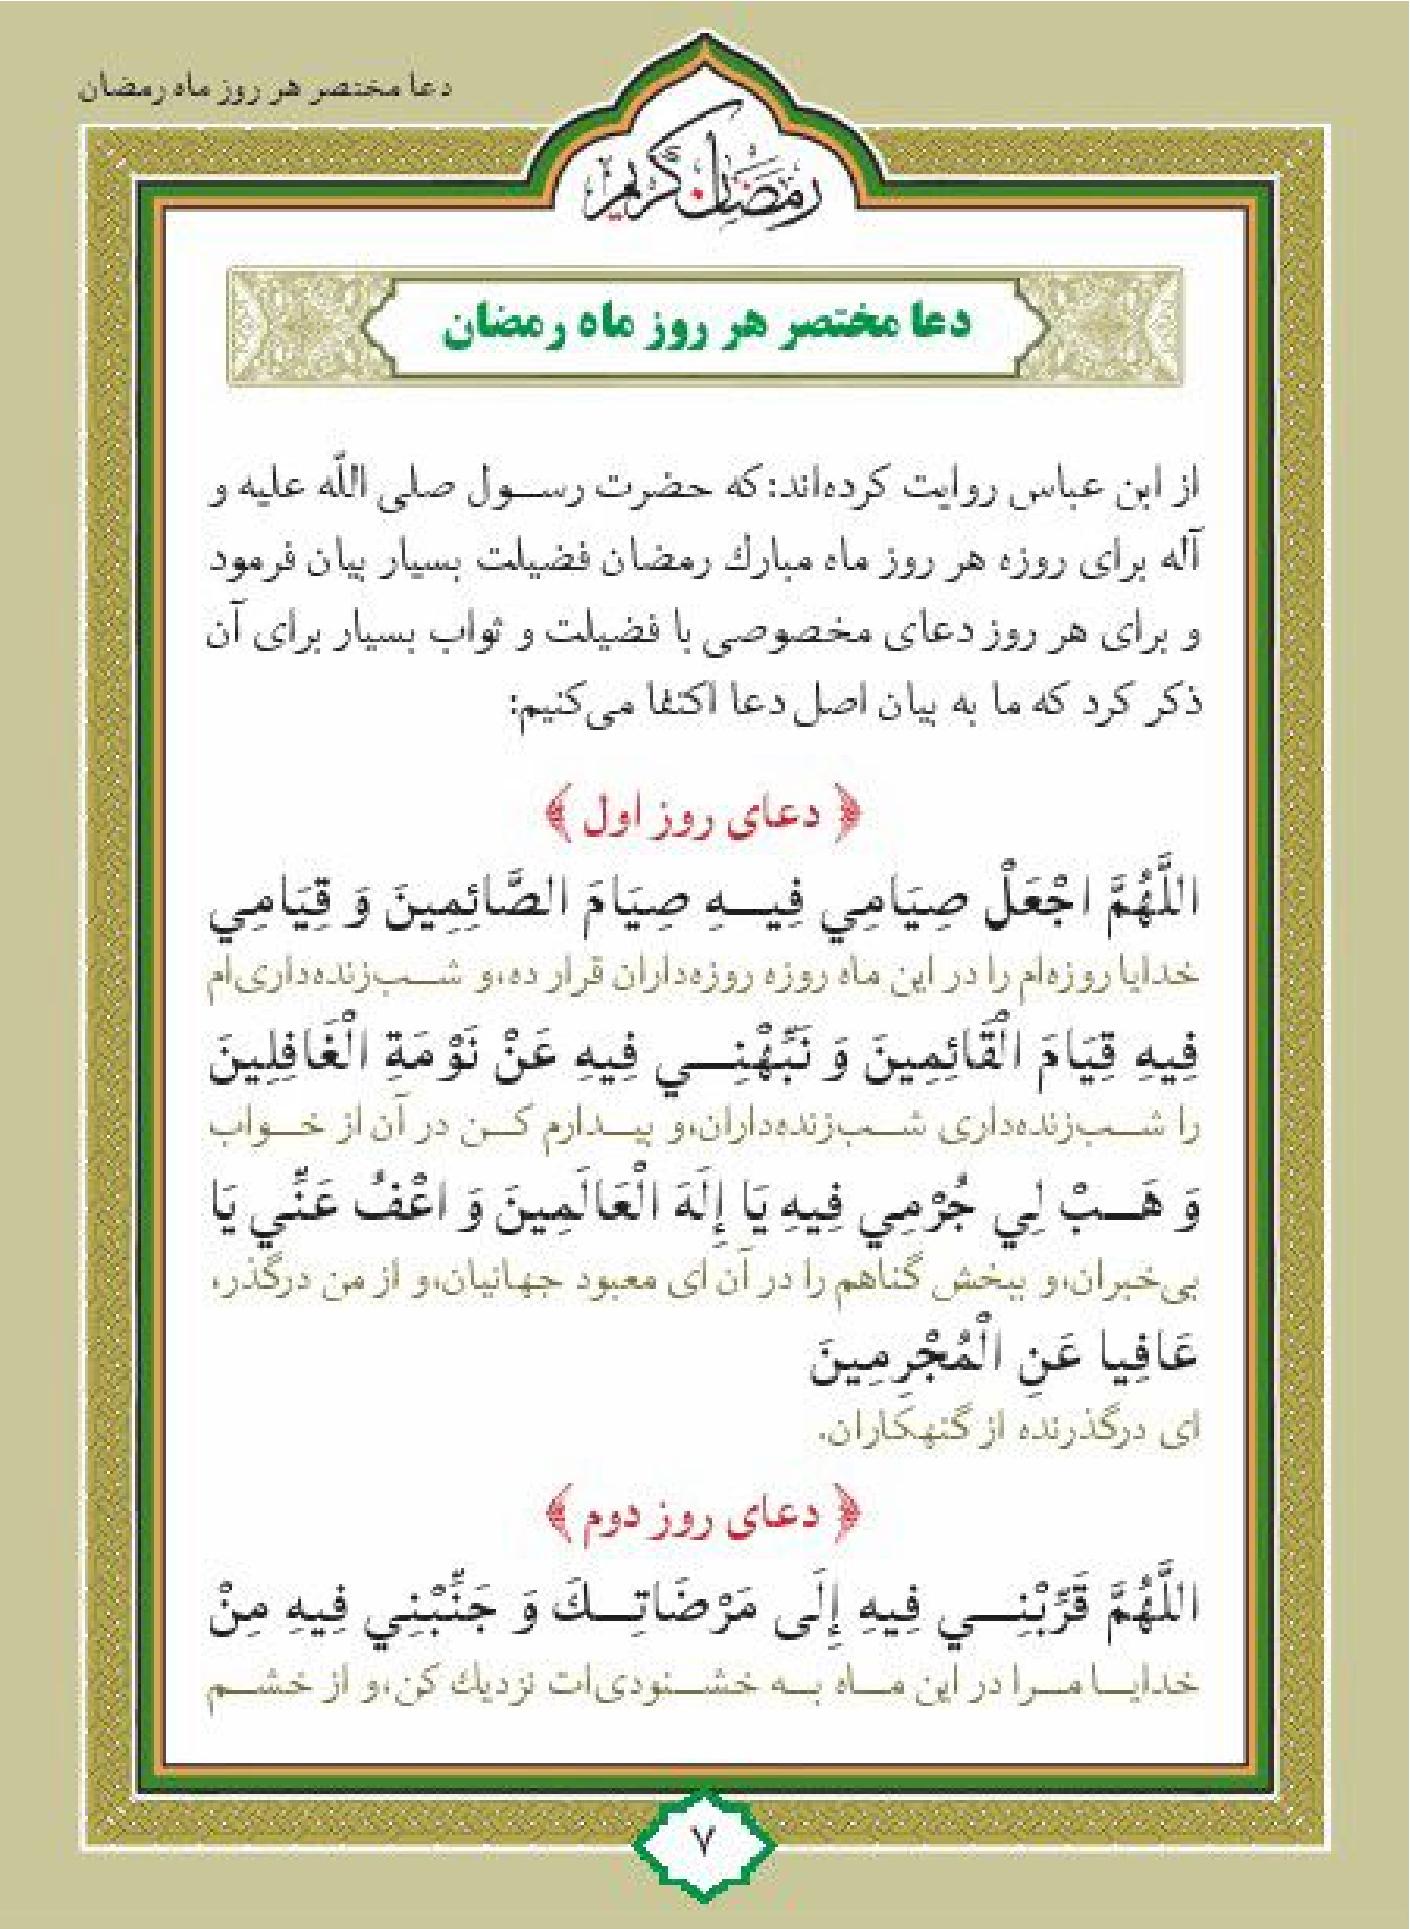 دعا مختصر هر روز ماه رمضان
رمضان کریم
دعا مختصر هر روز ماه رمضان
از ابن عباس روایت کرده‌اند:که حضرت رسول صلی اللّه علیه و
آله برای روزه هر روز ماه مبارك رمضان فضیلت بسیار بیان فرمود
و برای هر روز دعای مخصوصی با فضیلت و ثواب بسیار برای آن
ذکر کرد که ما به بیان اصل دعا اکتفا می‌کنیم:
﴿ دعای روز اول ﴾
اللَّهُمَّ اجْعَلْ صِيَامِي فِيهِ صِيَامَ الصَّائِمِينَ وَ قِيَامِي
خدایا روزه‌ام را در این ماه روزه روزه‌داران قرار ده،و شب‌زنده‌داری‌ام
فِيهِ قِيَامَ الْقَائِمِينَ وَ نَبِّهْنِي فِيهِ عَنْ نَوْمَةِ الْغَافِلِينَ
را شب‌زنده‌داری شب‌زنده‌داران،و بیدارم کن در آن از خواب
وَ هَبْ لِي جُرْمِي فِيهِ يَا إِلَهَ الْعَالَمِينَ وَ اعْفُ عَنِّي يَا
بی‌خبران،و ببخش گناهم را در آن ای معبود جهانیان،و از من درگذر،
عَافِيا عَنِ الْمُجْرِمِينَ
ای درگذرنده از گنهکاران.
﴿ دعای روز دوم ﴾
اللَّهُمَّ قَرِّبْنِي فِيهِ إِلَى مَرْضَاتِكَ وَ جَنِّبْنِي فِيهِ مِنْ
خدایا مرا در این ماه به خشنودی‌ات نزدیك کن،و از خشم
۷